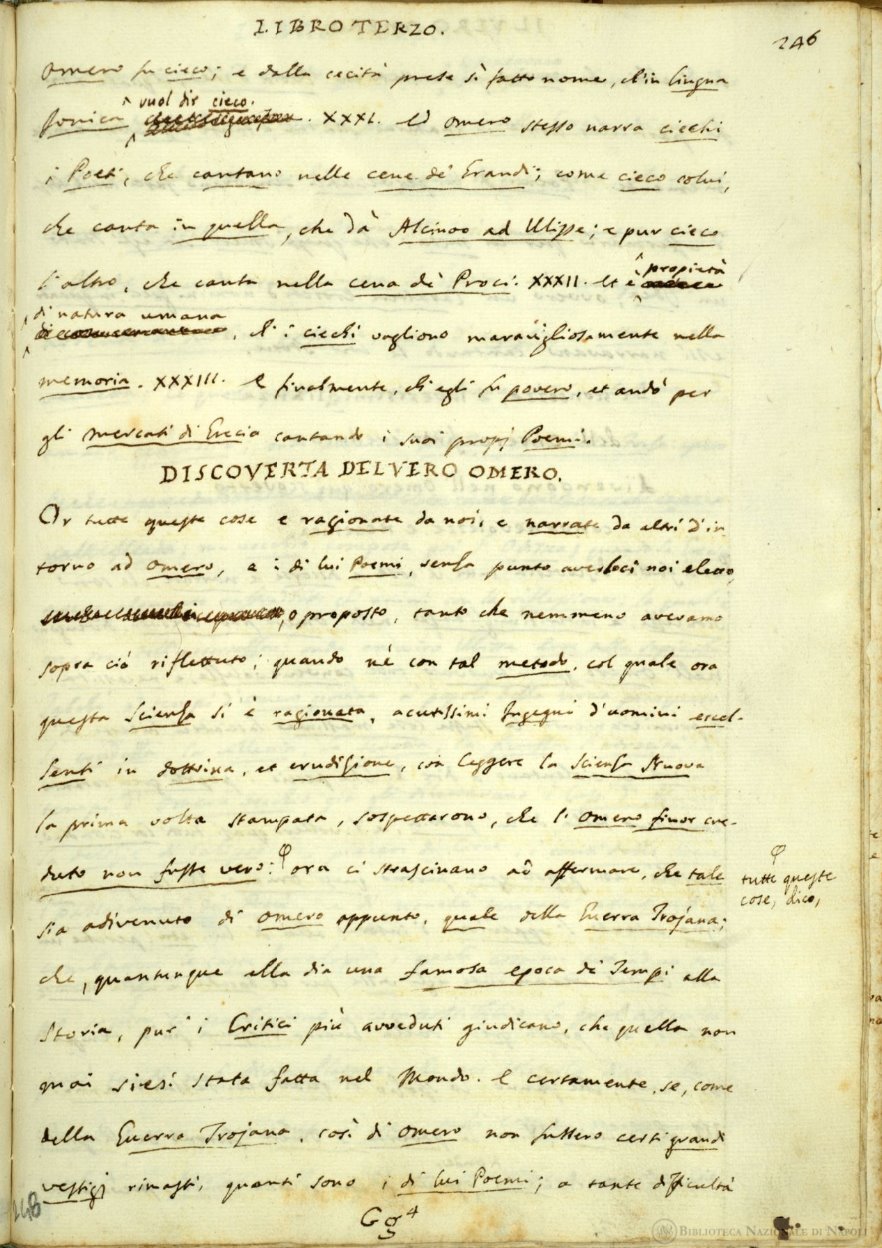 LIBRO TERZO.
246
Omero fu cieco; e dalla cecità prese sì fatto nome, ch'in lingua
vuol dir cieco.
Jonica . XXXI. Ed Omero stesso narra ciechi
i Poeti, che cantano nelle cene de' Grandi; come cieco colui,
che canta in quella, che dà Alcinoo ad Ulisse; e pur cieco
propietà
l'altro, che canta nella cena de' Proci. XXXII. Et è
di natura umana
, ch'i ciechi vagliono maravigliosamente nella
memoria. XXXIII. E finalmente, ch'egli fu povero, et andò per
gli mercati di Grecia cantando i suoi propj Poemi.
DISCOVERTA DEL VERO OMERO.
Or tutte queste cose e ragionate da noi, e narrate da altri d'in
torno ad Omero, e i di lui Poemi, senza punto averloci noi eletto,
o proposto, tanto che nemmeno avevamo
sopra ciò riflettuto; quando nè con tal metodo, col quale ora
questa Scienza si è ragionata, acutissimi Ingegni d'uomini eccel-
lenti in dottrina, et erudizione, con leggere la Scienza Nuova
la prima volta stampata, sospettarono, che l'Omero finor cre-
duto non fusse vero: φ ora ci strascinano ad affermare, che tale
φ
tutte queste
cose, dico,
sia adivenuto di Omero appunto, quale della Guerra Trojana;
che, quantunque ella dia una famosa epoca de' Tempi alla
Storia, pur' i Critici più avveduti giudicano, che quella non
mai siesi stata fatta nel Mondo. E certamente, se, come
della Guerra Trojana, così di Omero non fussero certi grandi
vestigj rimasti, quanti sono i di lui Poemi; a tante difficultà
Gg4
248
BIBLIOTECA NAZIONALE DI NAPOLI